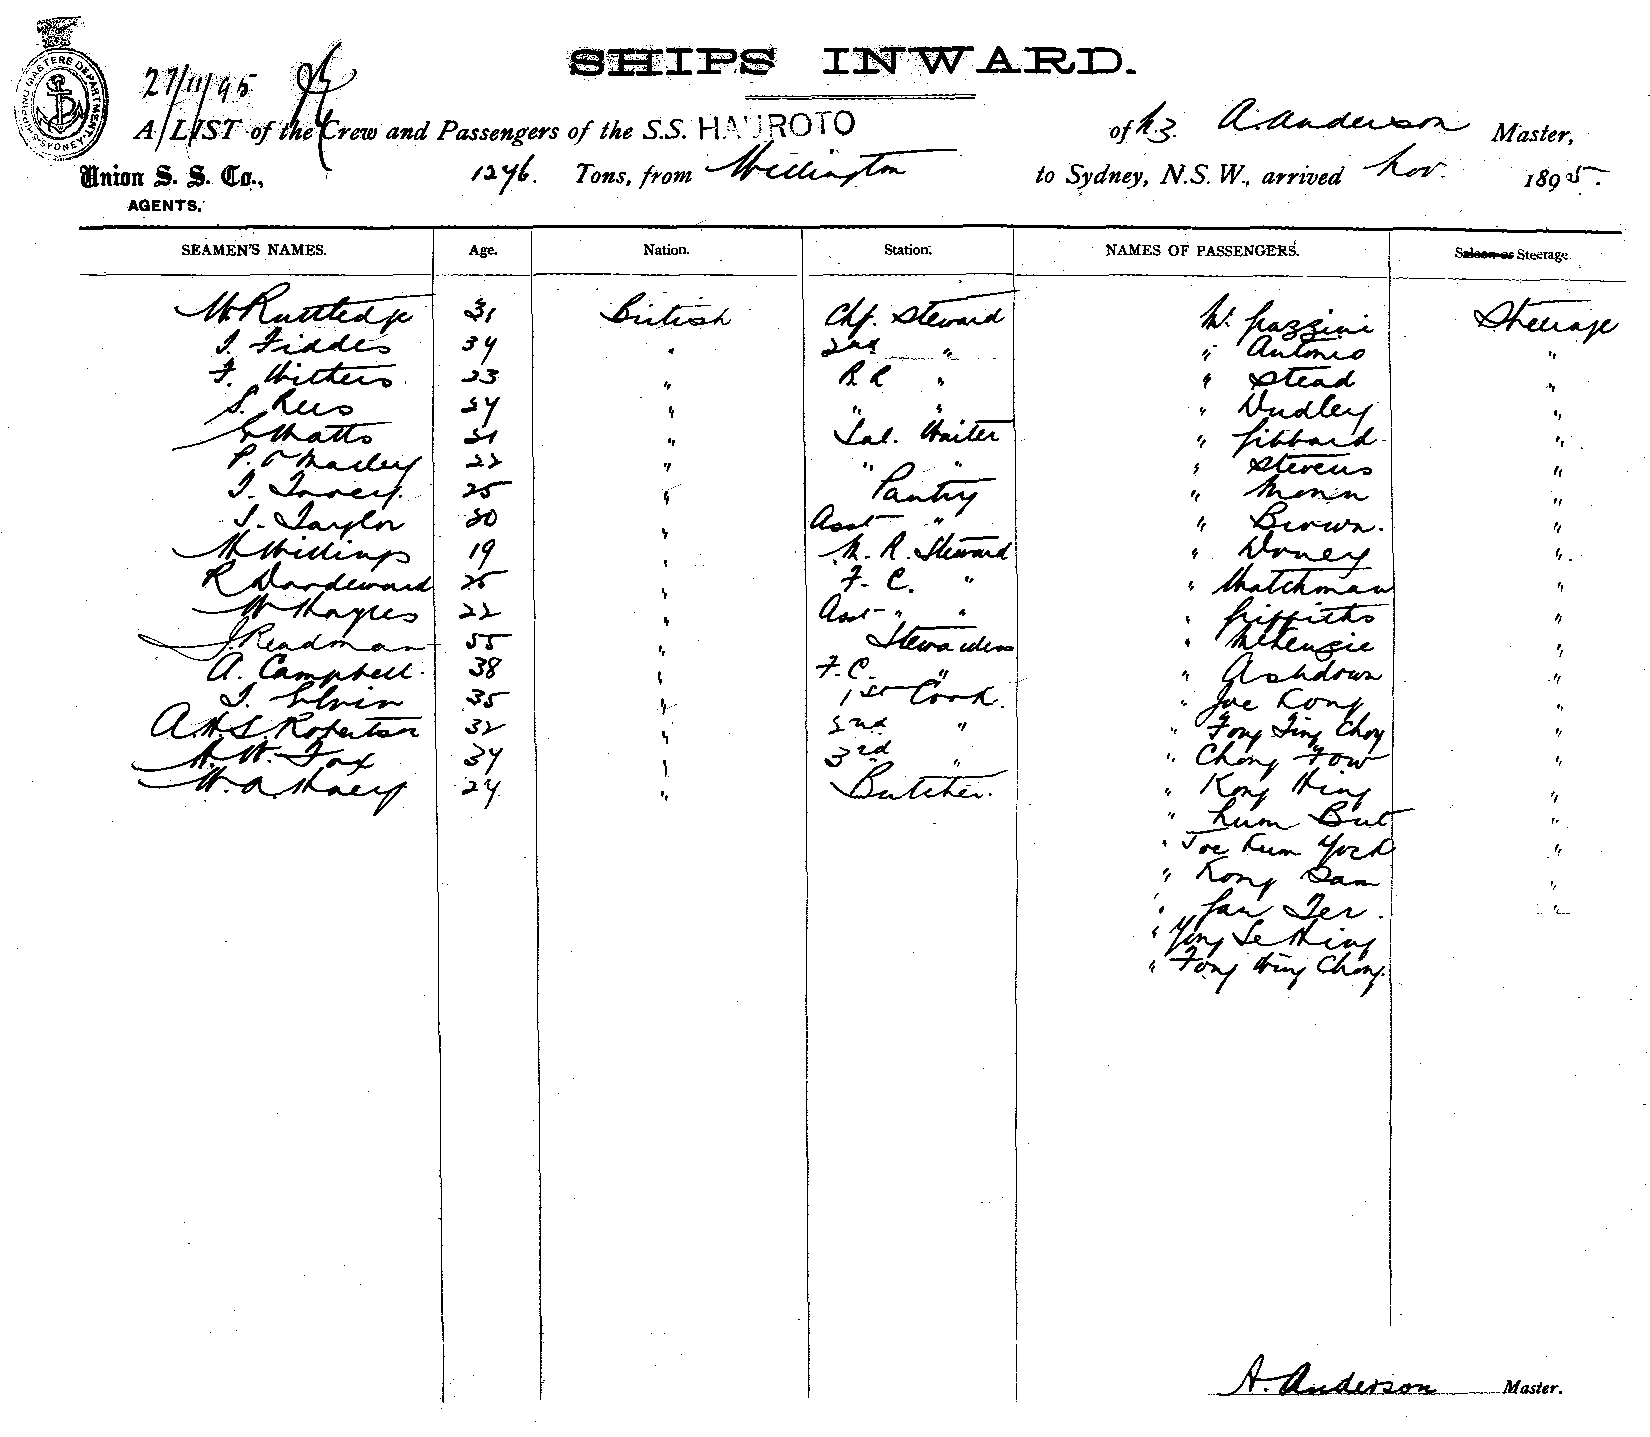 SHIPS INWARD.
SHIPPING MASTERS DEPARTMENT SYDNEY
27/11/95
A LIST of the Crew and Passengers of the S.S. HAUROTO of N.Z. A. Anderson Master,
Union S. S. Co., 1276. Tons, from Wellington to Sydney, N.S.W., arrived Nov. 1895.
AGENTS,
SEAMEN'S NAMES. Age. Nation. Station. NAMES OF PASSENGERS. Saloon or Steerage
W Ruttledge 31 British Chf. Steward Mr. Gazzini Steerage
J. Fiddes 34 " 2nd " " Antonio "
F. Withers 23 " R R " " Stead "
S. Rees 24 " " " " Dudley "
Watts " Sal. Waiter " Gibbard "
P. O'Mailey 22 " " " " Stevens "
J. 25 " Pantry " "
J. Taylor " Asst " " Brown. "
M Willings 19 " M. R. Steward " Doney "
R 25 " F. C. " " Watchman "
W Hayes 22 " Asst " " " Griffiths "
J. Readman 55 " Stewardess " McKenzie "
A. Campbell 38 " F. C. " " Ashdown "
J. Elvin 35 " 1st Cook. " Joe Kong "
A H S. Robertson 32 " 2nd " " Fong Ting Choy "
A. W. Fox 34 " 3rd " " Chong Fow "
W. A. 24 " Butcher. " Kong Hing "
" Lum But "
" Joe Kum Yock "
" Kong Sam "
" Jan Ter. "
" Yong Se Hing
" Fong Wing Chong.
A. Anderson Master.